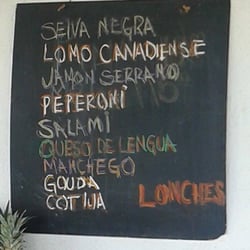 SELVA NEGRA
LOMO CANADIENSE
JAMON SERRANO
PEPERONI
SALAMI
QUESO DE LENGUA
MANCHEGO
GOUDA
COTIJA
LONCHES